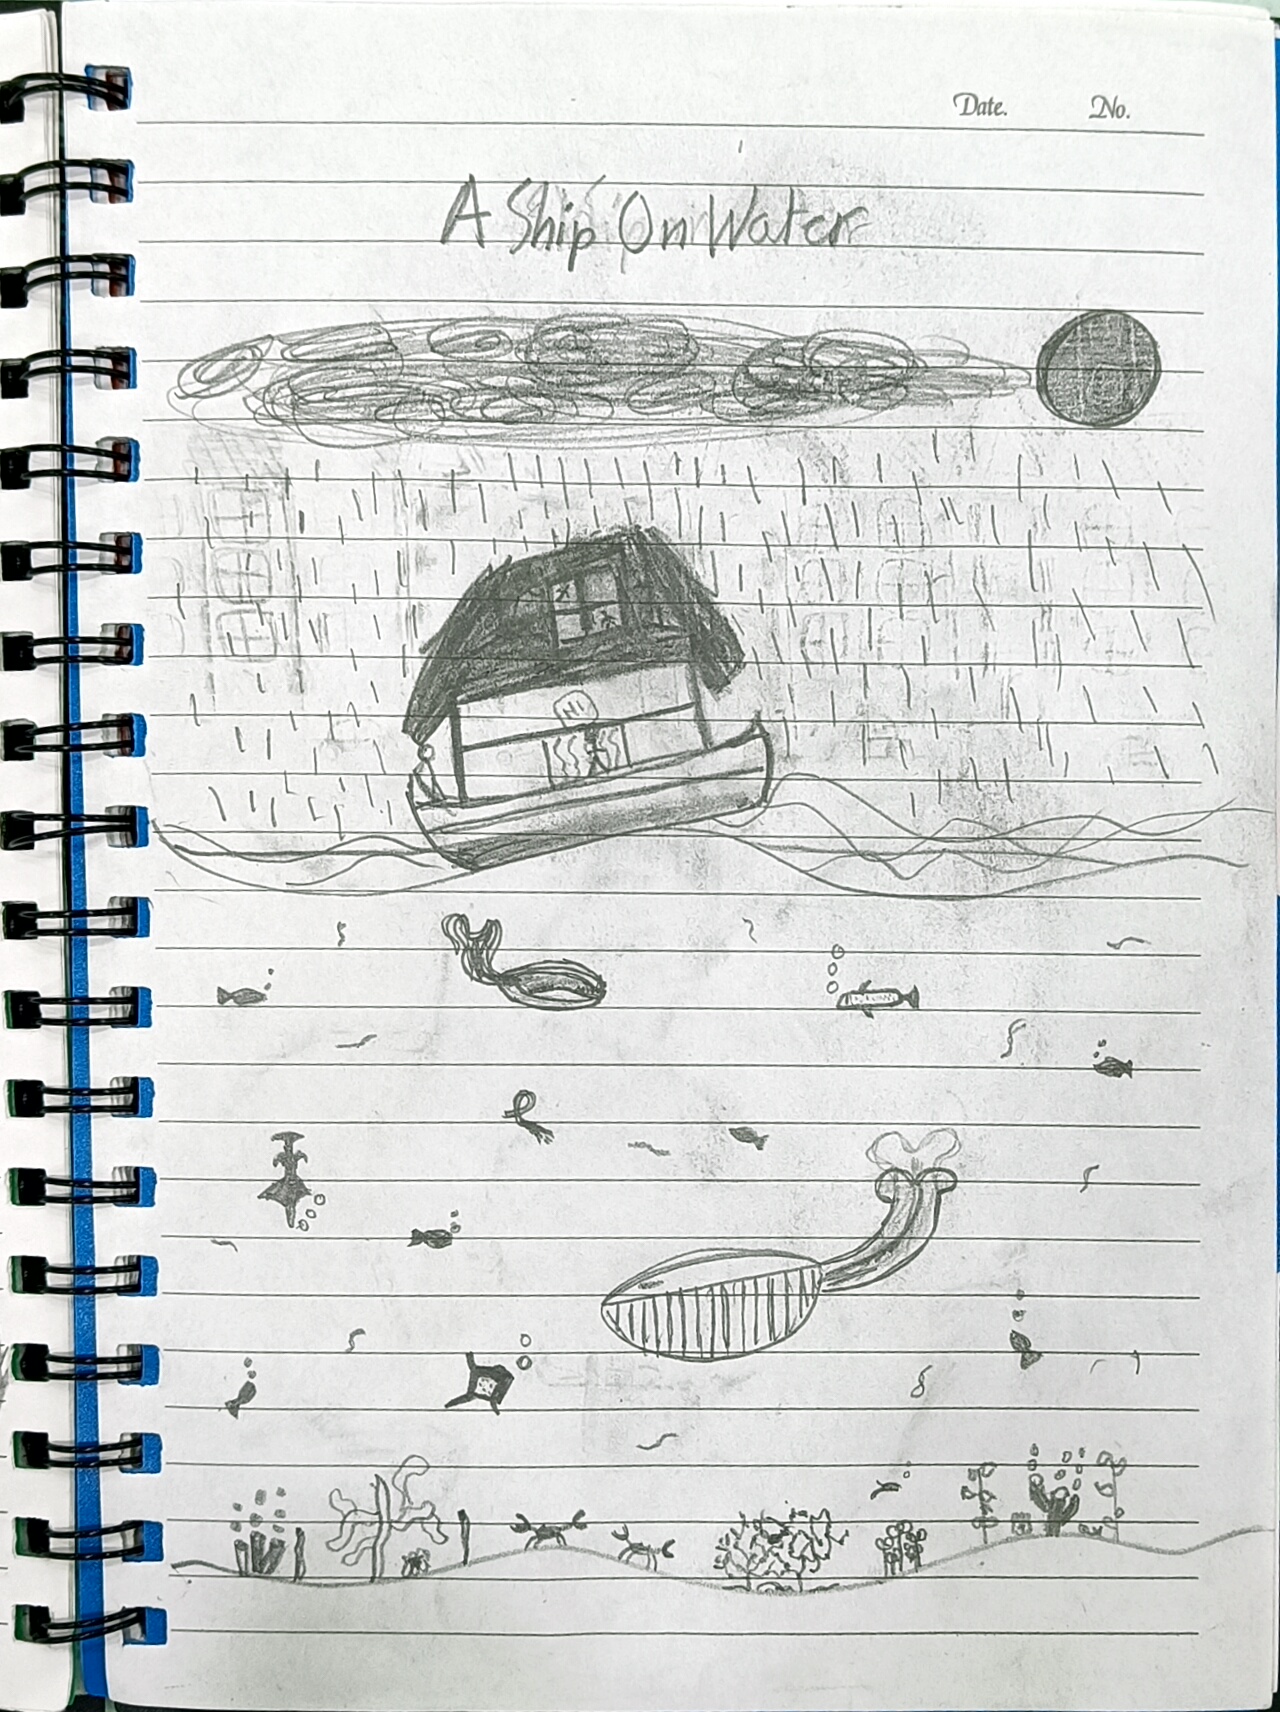 Date. No.
A Ship On Water
HI